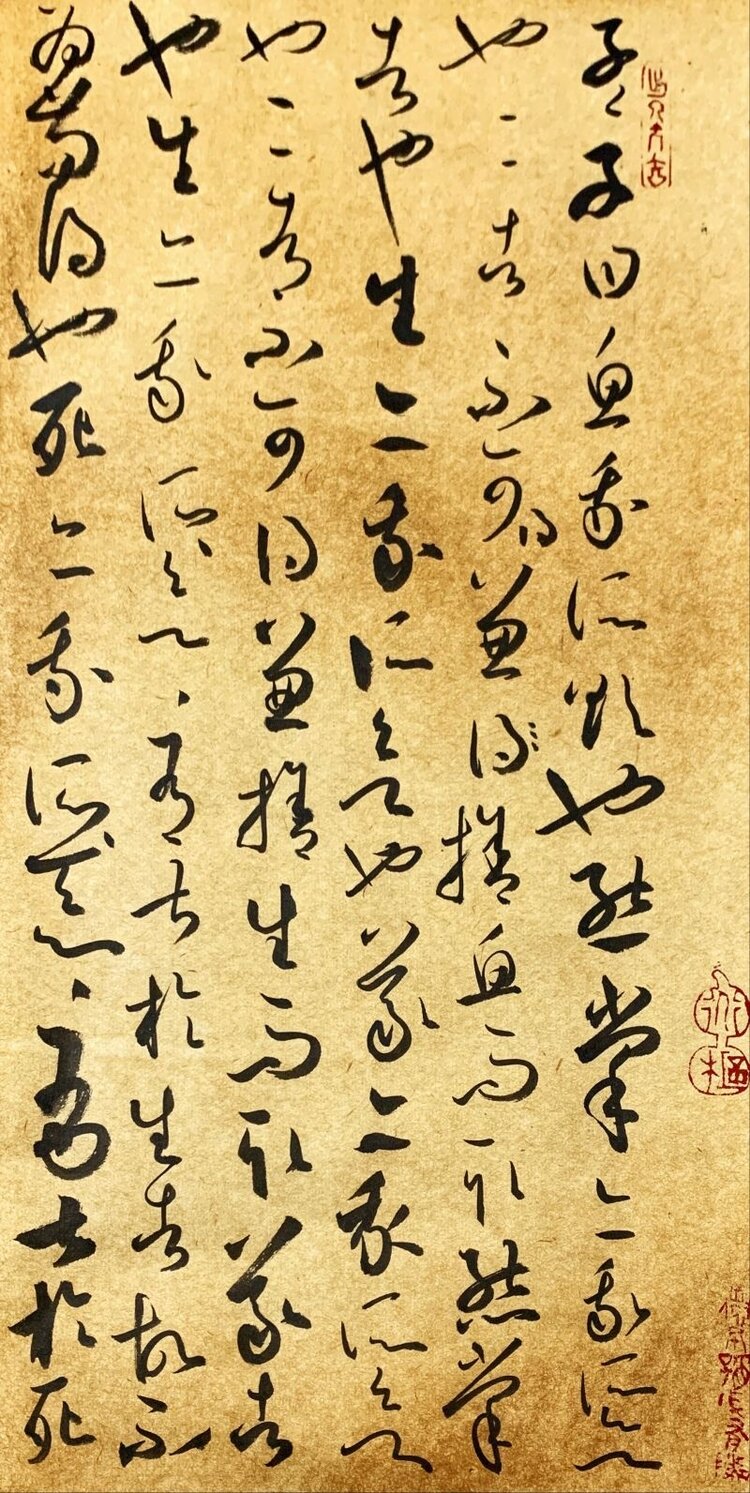 孟子曰魚我所欲也熊掌亦我所欲
也二者不可得兼得捨魚而取熊掌
者也生亦我所欲也義亦我所欲
也二者不可得兼捨生而取義者
也生亦我所欲、有甚於生者故不
為苟得也死亦我所惡、有甚於死